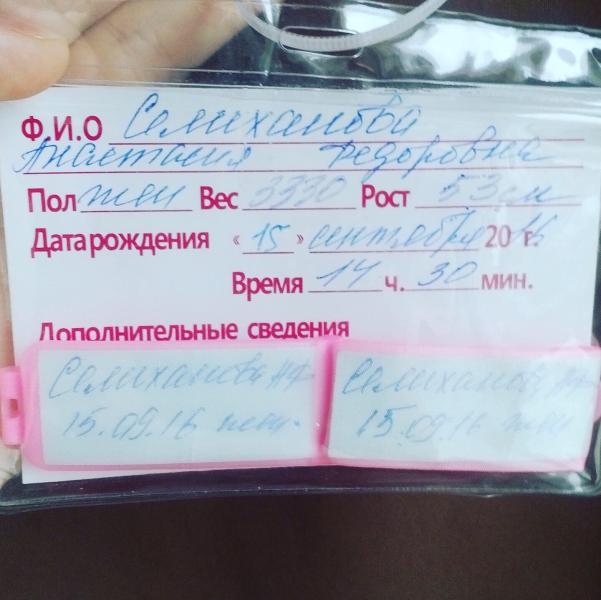 Ф.И.О Селиханова
Анастасия Федоровна
Пол жен Вес 3330 Рост 53 см
Дата рождения « 15 » сентября 20 16 г.
Время 14 ч. 30 мин.
Дополнительные сведения
Селиханова АФ
15.09.16 жен.
Селиханова АФ
15.09.16 жен